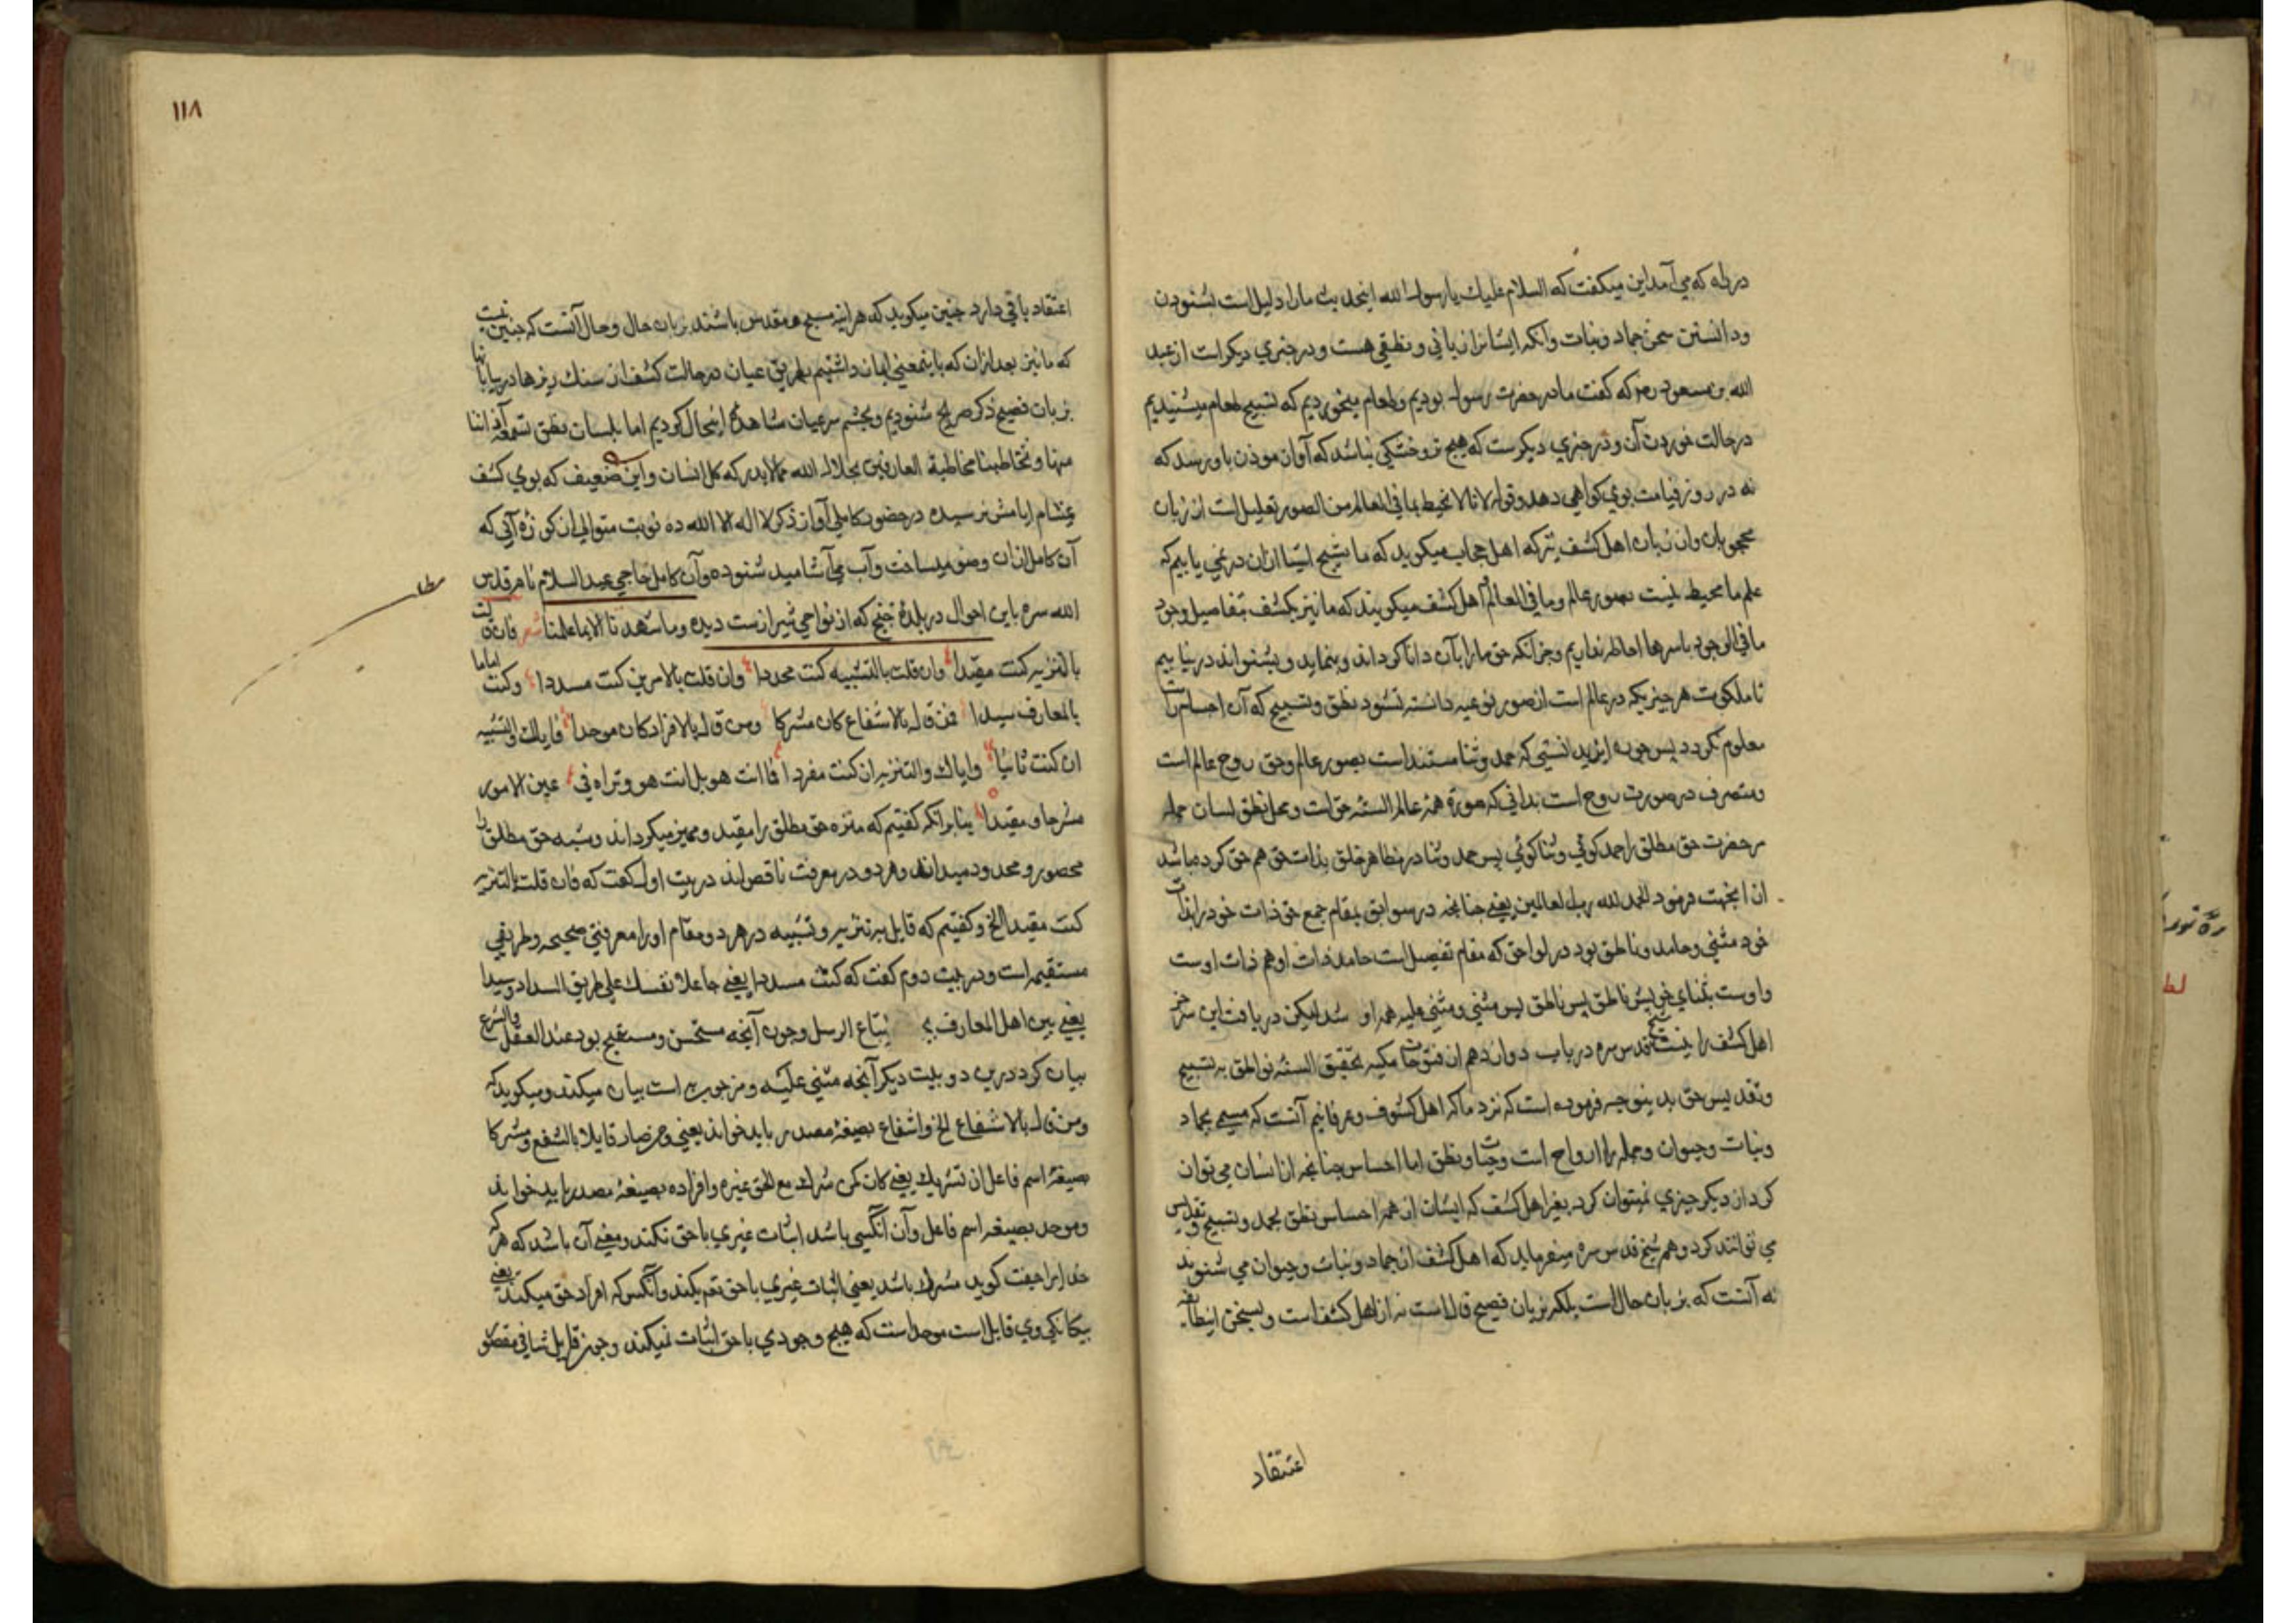 در راه که می آمد این میکفت که السلام علیك یا رسول الله اینحدیث مارا دلیل است بشنودن
ودانستن سخن جماد ونبات وانکه ایشانرا زبانی ونطقی هست ودر خبری دیکر است از عبد
الله بن مسعود رض که کفت ما در حضرت رسول بودیم وطعام میخوردیم که تسبیح طعام میشنیدیم
در حالت خوردن آن ودر خبری دیکرست که هیچ تر وخشکی نباشد که آواز موذن باو رسد که
نه در روز قیامت بوی کواهی دهد وقوله لانا لا نحیط بما فی العالم من الصور تعلیل است از زبان
محجوبان واز زبان اهل کشف نیز که اهل حجاب میکوید که ما تسبیح اشیا ازان در نمی یابیم که
علم ما محیط نیست بصور عالم وما فی العالم واهل کشف میکویند که ما نیز بکشف تفاصیل وجود
ما فی الوجود باسرها احاطه نداریم وجز انکه حق مارا بآن دانا کرداند وبنماید وبشنواند در نیابیم
تا ملکوت هر چیزیکه در عالم است از صور نوعیه دانسته نشود نطق وتسبیح که آن
معلوم نکردد پس چون این بدانستی که حمد وثنا مستند است بصور عالم وحق روح عالم است
ومتصرف در صورت روح است بدانی که صورة همه عالم السنه حق است ومحل نطق لسان جمله
مر حضرت حق مطلق را حمد کوئی وثنا کوئی پس حمد وثنا در مظاهر خلق بذات حق هم حق کرده باشد
از اینجهت فرمود الحمد لله رب العالمین یعنی چنانچه در سوابق بمقام جمع حق ذات خود را بذات
خود مثنی وحامد وناطق بود در لواحق که مقام تفصیل است حامد ذات او هم ذات اوست
واوست بثنای خویش ناطق پس ناطق پس مثنی ومثنی علیه همه او شد لیکن دریافت این سر جز
اهل کشف را نیست شیخ قدس سره در باب دوازدهم از فتوحات مکیه تحقیق السنه نواطق به تسبیح
وتقدیس حق بدینوجه فرموده است که نزد ما که اهل کشوف وعرفانیم آنست که مسمی بجماد
ونبات وحیوان وجمله را ارواح است وحیات ونطق اما احساس چنانچه از انسان می توان
کرد از دیکر چیزی نمیتوان کرد بغیر اهل کشف که ایشان از همه احساس نطق بحمد وتسبیح وتقدیس
می توانند کرد وهم شیخ قدس سره میفرماید که اهل کشف از جماد ونبات وحیوان می شنوند
نه آنست که بزبان حال است بلکه بزبان فصیح قال است نه از اهل کشف است وبسخن
اعتقاد
١١٨
اعتقاد باقی دارد چنین میکوید که هر آینه مسبح ومقدس باشند بزبان حال وحال آنست که چنین نیست
که ما نیز بعد ازان که باینمعنی ایمان داشتیم بطریق عیان در حالت کشف از سنك ریزها در بیابانها
بزبان فصیح ذکر صریح شنودیم وبچشم سر عیان مشاهدۀ اینحال کردیم اما بلسان نطق تسمعه آذاننا
منها وتخاطبنا مخاطبة العارفین بجلال الله مما لا یدرکه کل انسان واین ضعیف که بوی کشف
بمشام ایامش نرسیده در حضور کاملی آواز ذکر لا اله الا الله ده نوبت متوالی از کوزه آبی که
آن کامل ازان وضو میساخت وآب می آشامید شنوده وآن کامل حاجی عبد السلام نام قدس
الله سره باین احوال در بلدۀ خنج که از نواحی شیراز ست دیده وما شهدنا الا بما علمنا شعر فان قلت
بالتنزیه کنت مقیدا وان قلت بالتشبیه کنت محددا وان قلت بالامرین کنت مسددا وکنت اماما
بالمعارف سیدا فمن قال بالاشفاع کان مشرکا ومن قال بالافراد کان موحدا فایاك والتشبیه
ان کنت ثانیا وایاك والتنزیه ان کنت مفردا فما انت هو بل انت هو وتراه فی عین الامور
مسرحا ومقیدا بنابر انکه کفتیم که منزه حق مطلق را مقید وممیز میکرداند ومشبه حق مطلق را
محصور ومحدود میداند وهر دو در معرفت ناقص اند در بیت اول کفت که فان قلت بالتنزیه
کنت مقیدا الخ وکفتیم که قایل بر تنزیه وتشبیه در هر دو مقام اورا معرفتی صحیحه وطریقی
مستقیمه است ودر بیت دوم کفت که کنت مسددا یعنی جاعلا نفسك علی طریق السداد وسیدا
یعنی بین اهل المعارف باتباع الرسل وچون آنچه مستحسن ومستقبح بود عند العقل والشرع
بیان کرد درین دو بیت دیکر آنچه مثنی علیه ومزجور به است بیان میکند ومیکوید که
ومن قال بالاشفاع الخ واشفاع بصیغۀ مصدر باید خواند یعنی ومن صار قایلا بالشفع ومشرکا
بصیغۀ اسم فاعل از تشریك یعنی کان کمن شرك مع الحق غیره وافراد بصیغۀ مصدر باید خواند
وموحد بصیغه اسم فاعل وآن آنکسی باشد اثبات غیری با حق نکند ومعنی آن باشد که هر که
خدایرا جفت کوید مشرك باشد یعنی اثبات غیری با حق میکند وآنکس که افراد حق میکند یعنی
بیکانکی وی قایل است موحد است که هیچ وجودی با حق اثبات نمیکند وچون